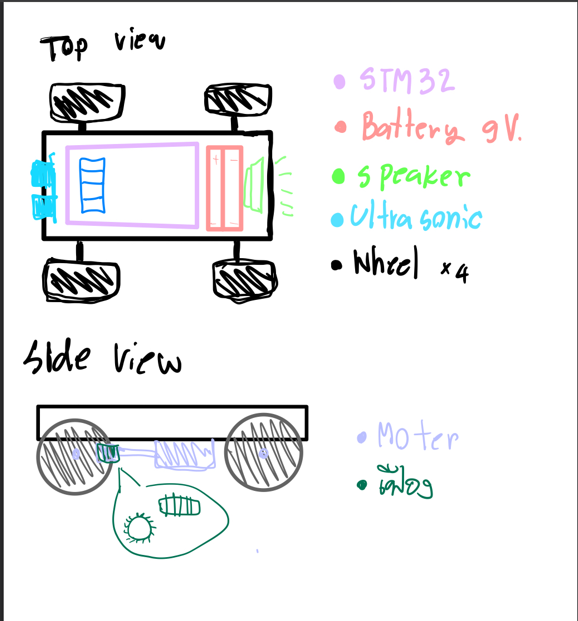 Top view
STM32
Battery 9V.
+ -
speaker
Ultrasonic
Wheel x4
Side View
Moter
เฟือง